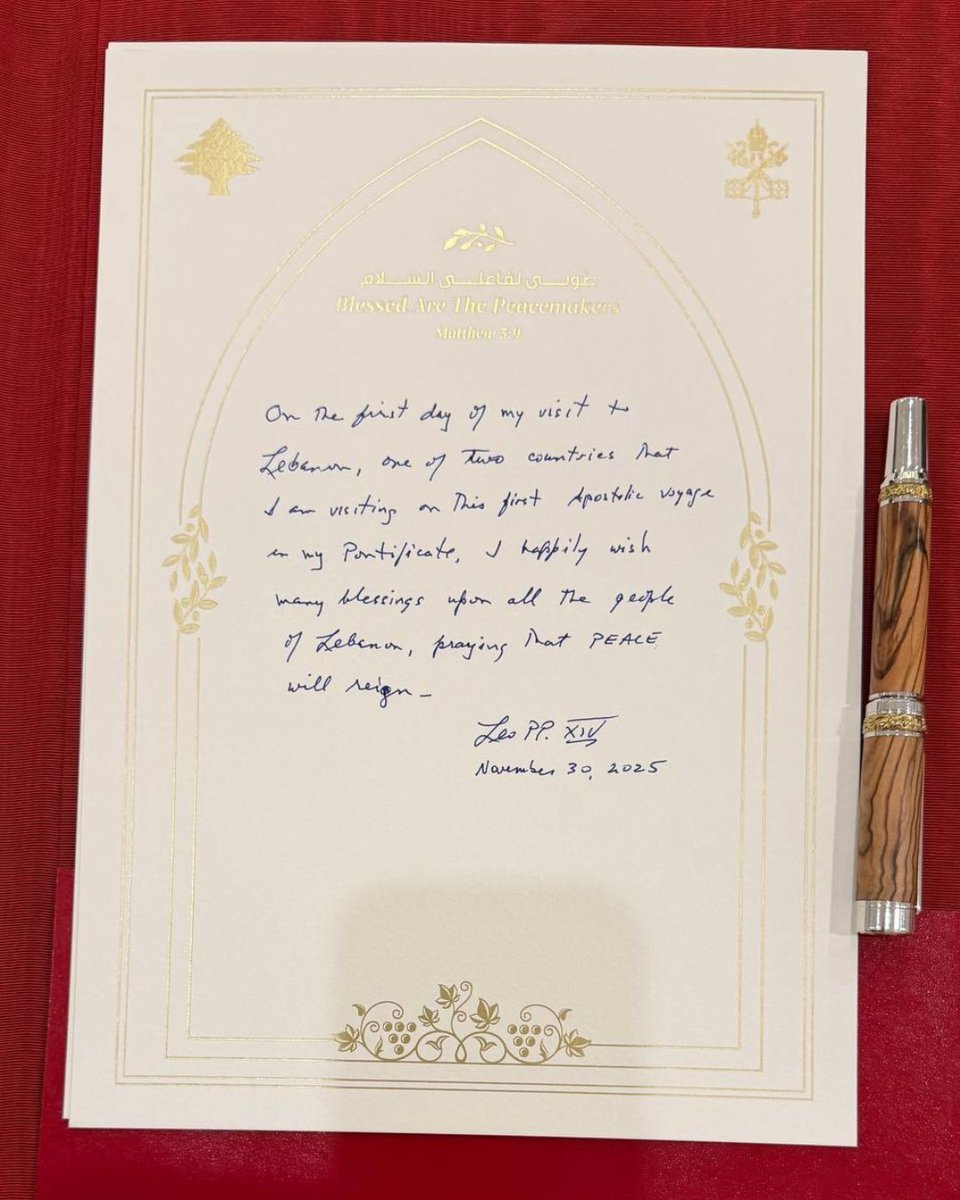 طوبى لفاعلي السلام
Blessed Are The Peacemakers
Matthew 5:9
On the first day of my visit to
Lebanon, one of two countries that
I am visiting on this first Apostolic voyage
in my Pontificate, I happily wish
many blessings upon all the people
of Lebanon, praying that PEACE
will reign –
Leo PP. XIV
November 30, 2025